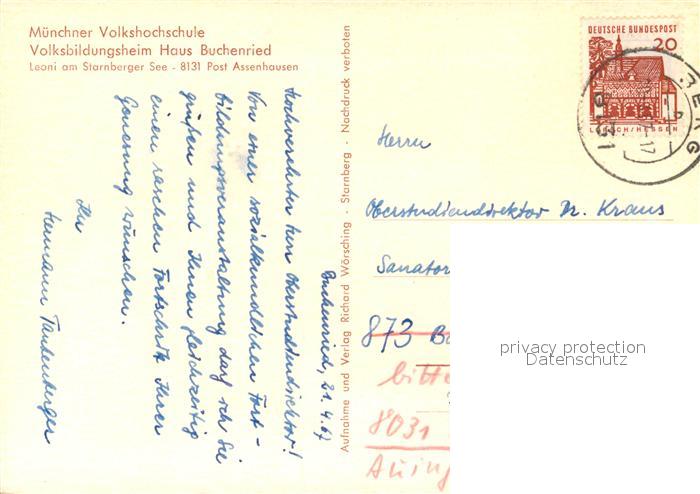 Münchner Volkshochschule
Volksbildungsheim Haus Buchenried
Leoni am Starnberger See - 8131 Post Assenhausen
Buchenried, 21.4.67
Hochverehrter Herr Oberstudiendirektor!
Von einer sozialkundlichen Fort-
bildungsveranstaltung darf ich Sie
grüßen und Ihnen gleichzeitig
einen raschen Fortschritt Ihrer
Genesung wünschen.
Ihr
Hermann Tautenberger
Aufnahme und Verlag Richard Wörsching - Starnberg - Nachdruck verboten
DEUTSCHE BUNDESPOST
20
LORSCH/HESSEN
8131 BERG
Herrn
Oberstudiendirektor Dr. Kraus
Sanator
873 Ba
bitte
8031
privacy protection
Datenschutz